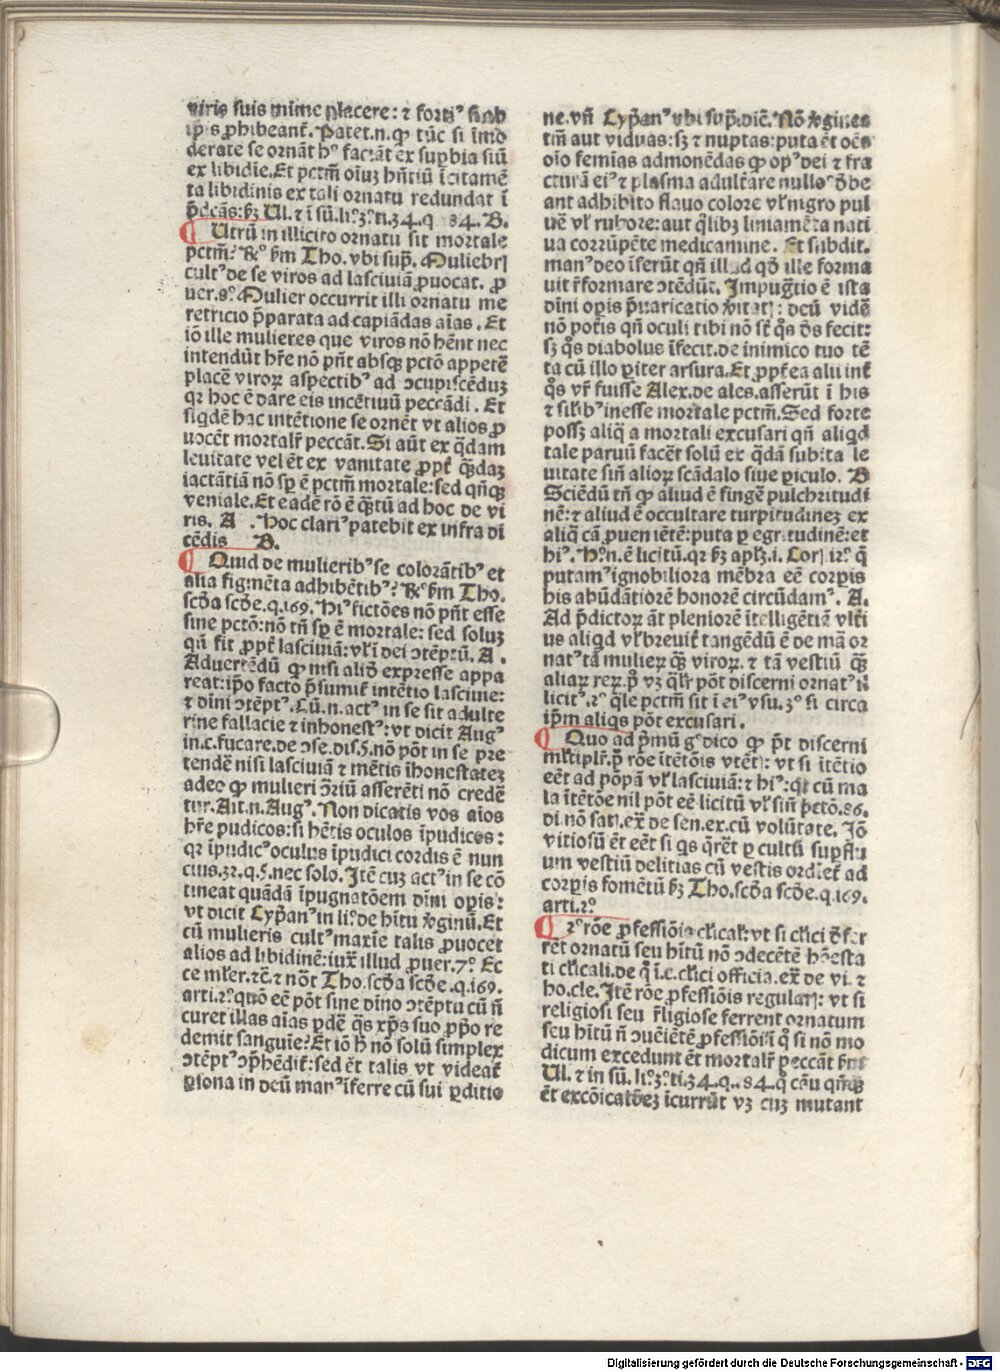 viris suis mīme placere: ⁊ forti᷒
ip̄s ꝓhibeant᷑. Patet.n.ꝙ tūc si īmo
derate se ornāt hͦ faciāt ex supbia siū
ex libidīe.Et pctm̄ oīuꝫ hn̄tiū īcitamē
ta libidinis ex tali ornatu redundat ī
p̄dcās:ẜꝫ Ul.⁊ ī sū.li.3.ti.34.q 84.B.
Utrū in illicito ornatu sit mortale
pctm̄? Rͦ ẜm Tho.vbi sup̄. Muliebrꝭ
cult᷒ de se viros ad lasciuiā ꝓuocat. ꝓ
uer.8ͦ. Mulier occurrit illi ornatu me
retricio p̄parata ad capiādas aīas. Et
iō ille mulieres que viros nō hēnt nec
intendūt hr̄e nō pn̄t absqꝫ pctō appetē
placē viroꝝ aspectib᷒ ad ↄcupiscēduꝫ
qꝛ hoc ē dare eis incētiuū peccādi. Et
siqdē hac intētione se ornēt vt alios ꝓ
uocēt mortalr̄ peccāt.Si aūt ex q̄dam
leuitate vel ēt ex vanitate ꝓpt᷑ q̄ndaꝫ
iactātiā nō sꝑ ē pctm̄ mortale:sed qn̄qꝫ
veniale.Et eadē rō ē q̄tū ad hoc de vi
ris. A . hoc clari᷒ patebit ex infra di
cēdis B.
Quid de mulierib᷒ se colorātib᷒ et
alia figmēta adhibētib᷒? Rͦ ẜm Tho.
scd̄a scd̄e.q.169. Hꝰ fictōes nō pn̄t esse
sine pctō:nō tn̄ sꝑ ē mortale: sed soluꝫ
qn̄ fit ꝓpt᷑ lasciuiā:vl̄ ī dei ↄtēptū. A .
Aduertēdū ꝙ nisi aliō expresse appa
reat:ip̄o facto p̄sumit᷑ intētio lasciuie:
⁊ dīni ↄtēpt᷒. Cū.n.act᷒ in se sit adulte
rine fallacie ⁊ inhonest᷒: vt dicit Aug᷒
in.c.fucare.de ↄse.dis.5.nō pōt in se pre
tendē nisi lasciuiā ⁊ mētis īhonestateꝫ
adeo ꝙ mulieri ↄ̄riū asserēti nō credē
tur.Ait.n.Aug᷒. Non dicatis vos aīos
hr̄e pudicos:si hētis oculos īpudicos:
qꝛ īpudic᷒ oculus īpudici cordis ē nun
cius.32.q.5.nec solo.Itē cuꝫ act᷒ in se cō
tineat quādā īpugnatōem dīni opīs:
vt dicit Cyp̄an᷒ in li.de hītu v̄ginū.Et
cū mulieris cult᷒ maxīe talis ꝓuocet
alios ad libidinē:iux͛ illud ꝓuer.7ͦ. Ec
ce ml̄er.⁊c̄.⁊ nōt Tho.scd̄a scd̄e.q.169.
arti.2ͦ.quō eē pōt sine dīno ↄtēptu cū n̄
curet illas aīas ꝑdē q̄s xp̄s suo ꝓp̄o re
demit sanguīe?Et iō hͦ nō solū simplex
ↄtēpt᷒ ↄp̄hēdit᷑:sed ēt talis vt videat᷑
ꝑsona in deū man᷒ īferre cū sui ꝑditio
ne.vn̄ Cyp̄an᷒ vbi sup̄.dic̄. Nō v̄gines
tm̄ aut viduas:sꝫ ⁊ nuptas:puta ēt oēs
oīo femīas admonēdas ꝙ op᷒ dei ⁊ fra
cturā ei᷒ ⁊ plasma adult᷑are nullo᷒ d̄be
ant adhibito flauo colore vl̄ nigro pul
ue̅ vl̄ rubore:aut q̄libꝫ liniamēta nati
ua corrūpēte medicamine. Et subdit.
man᷒ deo īferūt qn̄ illud qd̄ ille forma
uit r̄formare ↄtēdūt. Impug̅tio ē ista
dīni opīs p̄uaricatio v̄itatꝭ: deū vidē
nō potīs qn̄ oculi tibi nō sūt q̄s d̄s fecit:
sꝫ q̄s diabolus īfecit.de inimico tuo tē
ta cū illo ꝑiter arsura.Et ꝓpt᷑ea alii int᷑
q̄s vr̄ fuisse Alex.de ales.asserūt ī his
⁊ silib᷒ inesse mortale pctm̄.Sed forte
possꝫ aliq̄ a mortali excusari qn̄ aliqd
tale paruū facēt solū ex q̄dā subita le
uitate sin̄ alioꝝ scādalo siue ꝑiculo. B
Sciēdū tn̄ ꝙ aliud ē fingē pulchritudi
nē:⁊ aliud ē occultare turpitudineꝫ ex
aliq̄ cā ꝓuenīētē:puta ꝑ egritudinē:et
hi᷒. Hͦ.n.ē licitū.qꝛ ẜꝫ aplꝫ.i. Corꝭ.12ͦ. q̄
putam᷒ ignobiliora mēbra eē corpīs
his abūdātiorē honorē circūdam᷒. A.
Ad p̄dictoꝝ āt pleniorē ītelligētiā vlt᷑i
us aliqd vl̄ breuit᷑ tangēdū ē de mā or
nat᷒ tā mulieꝝ q̄ꝫ viroꝝ. ⁊ tā vestiū q̄ꝫ
aliaꝝ reꝝ.pͦ vꝫ ql̄r pōt discerni ornat᷒ n̄
licit᷒.2ͦ q̄le pctm̄ sit ī ei᷒ vsu.3ͦ si circa
ip̄m aliqs pōt excusari.
Quo ad p̄mū gͦ dico ꝙ p̄t discerni
ml̄tiplr̄.pͦ rōe ītētōis vtētꝭ: vt si ītētio
eēt ad pōpā vl̄ lasciuiā:⁊ hi᷒:qꝛ cū ma
la ītētōe nil pōt eē licitū vl̄ sin̄ pctō.86.
di.nō satꝭ.ex͛ de sen.ex.cū volūtate. Iō
vitiosū ēt eēt si qs q̄rēt ꝑ cultū suꝑflu
um vestiū delitias cū vestis ordīet᷑ ad
corpīs fomētū ẜꝫ Tho.scd̄a scd̄e.q.169.
arti.2ͦ
2ͦ rōe ꝓfessiōis cl̄icalꝭ:vt si cl̄ici d̄fer
rēt ornatū seu hītū nō ↄdecētē hōesta
ti cl̄icali.de q̄ ī.c.cl̄ici officia.ex͛ de vi.⁊
ho.cle.Itē rōe ꝓfessiōis regularꝭ: vt si
religiosi seu r̄ligiose ferrent ornatum
seu hītū n̄ ↄueīētē ꝓfessiōi.ī q̄ si nō mo
dicum excedunt ēt mortalr̄ peccāt ẜm
Ul.⁊ in sū.li.3ͦ.ti.34.q..84.q̄ cāu qn̄qꝫ
ēt excōicatōeꝫ īcurrūt vꝫ cuꝫ mutant
Digitalisierung gefördert durch die Deutsche Forschungsgemeinschaft - DFG